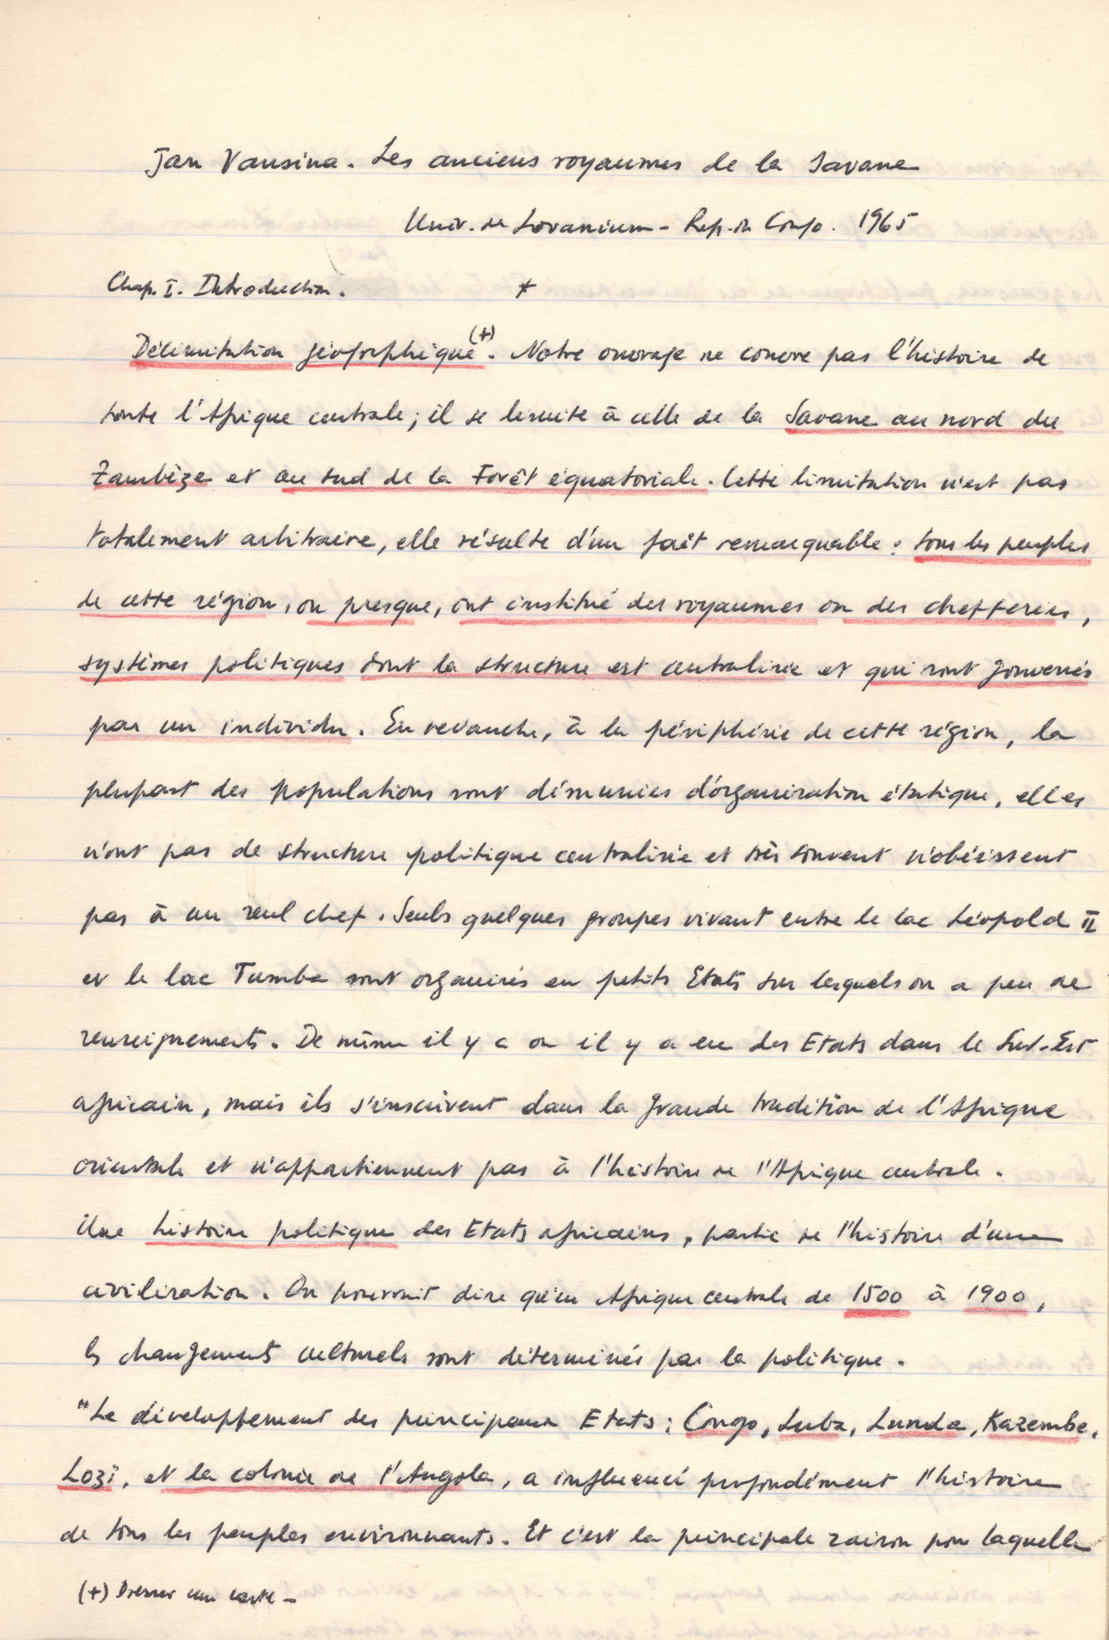 Jan Vansina. Les anciens royaumes de la Savane
Univ. de Lovanium - Rep. du Congo. 1965
Chap. I. Introduction. *
Délimitation géographique (+). Notre ouvrage ne couvre pas l'histoire de
toute l'Afrique centrale; il se limite à celle de la Savane au nord du
Zambèze et au sud de la Forêt équatoriale. Cette limitation n'est pas
totalement arbitraire, elle résulte d'un fait remarquable : tous les peuples
de cette région, ou presque, ont institué des royaumes ou des chefferies,
systèmes politiques dont la structure est centralisée et qui sont gouvernés
par un individu. En revanche, à la périphérie de cette région, la
plupart des populations sont démunies d'organisation étatique, elles
n'ont pas de structure politique centralisée et très souvent n'obéissent
pas à un seul chef. Seuls quelques groupes vivant entre le lac Léopold II
et le lac Tumba sont organisés en petits Etats sur lesquels on a peu de
renseignements. De même il y a ou il y a eu des Etats dans le Sud-Est
africain, mais ils s'inscrivent dans la grande tradition de l'Afrique
orientale et n'appartiennent pas à l'histoire de l'Afrique centrale.
Une histoire politique des Etats africains, partie de l'histoire d'une
civilisation. On pourrait dire qu'en Afrique centrale de 1500 à 1900,
ls changements culturels sont déterminés par la politique.
"Le développement des principaux Etats : Congo, Luba, Lunda, Kazembe,
Lozi, et la colonie de l'Angola, a influencé profondément l'histoire
de tous les peuples environnants. Et c'est la principale raison pour laquelle
(+) Dresser une carte -